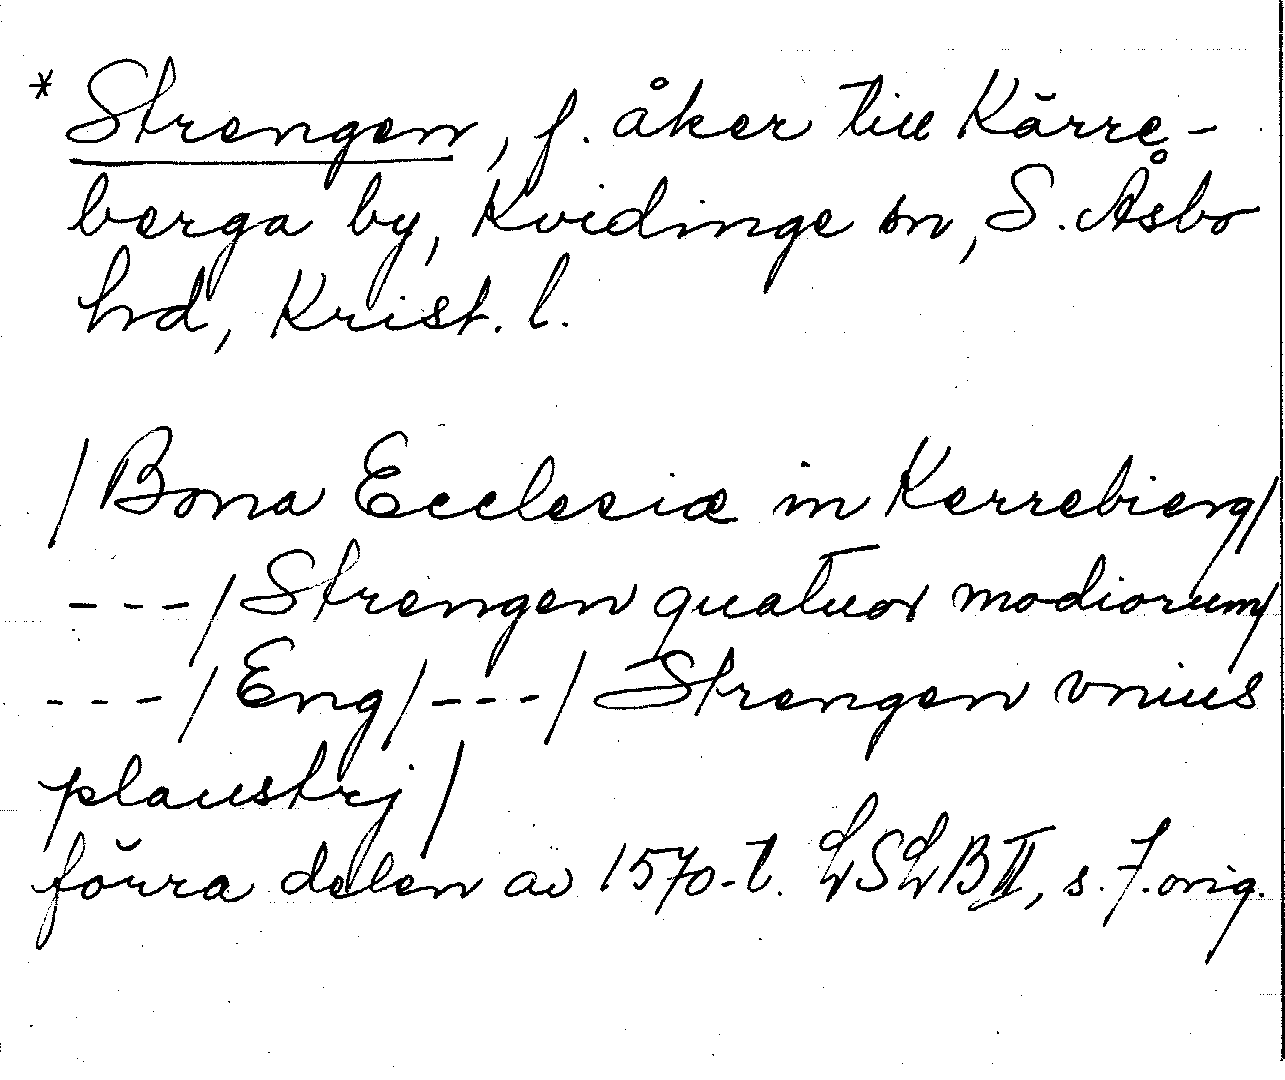 * Strengen, f. åker till Kärre-
berga by, Kvidinge sn, S. Åsbo
hd, Krist. l.
/Bona Ecclesiæ in Kerrebierg/
---/Strengen quatuor modiorum/
---/Eng/---/Strengen vnius
plaustrj/
förra delen av 1570-t. LSLB II, s. 7. orig.